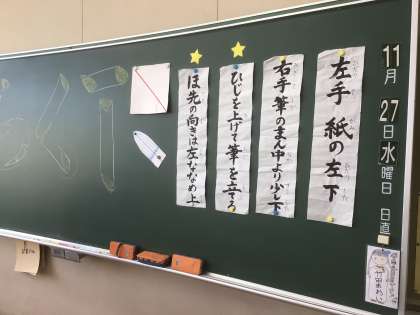 11月27日水曜日 日直
左手 紙の左下
右手 筆のまん中より少し下
ひじを上げて筆を立てる
ほ先の向きは左ななめ上